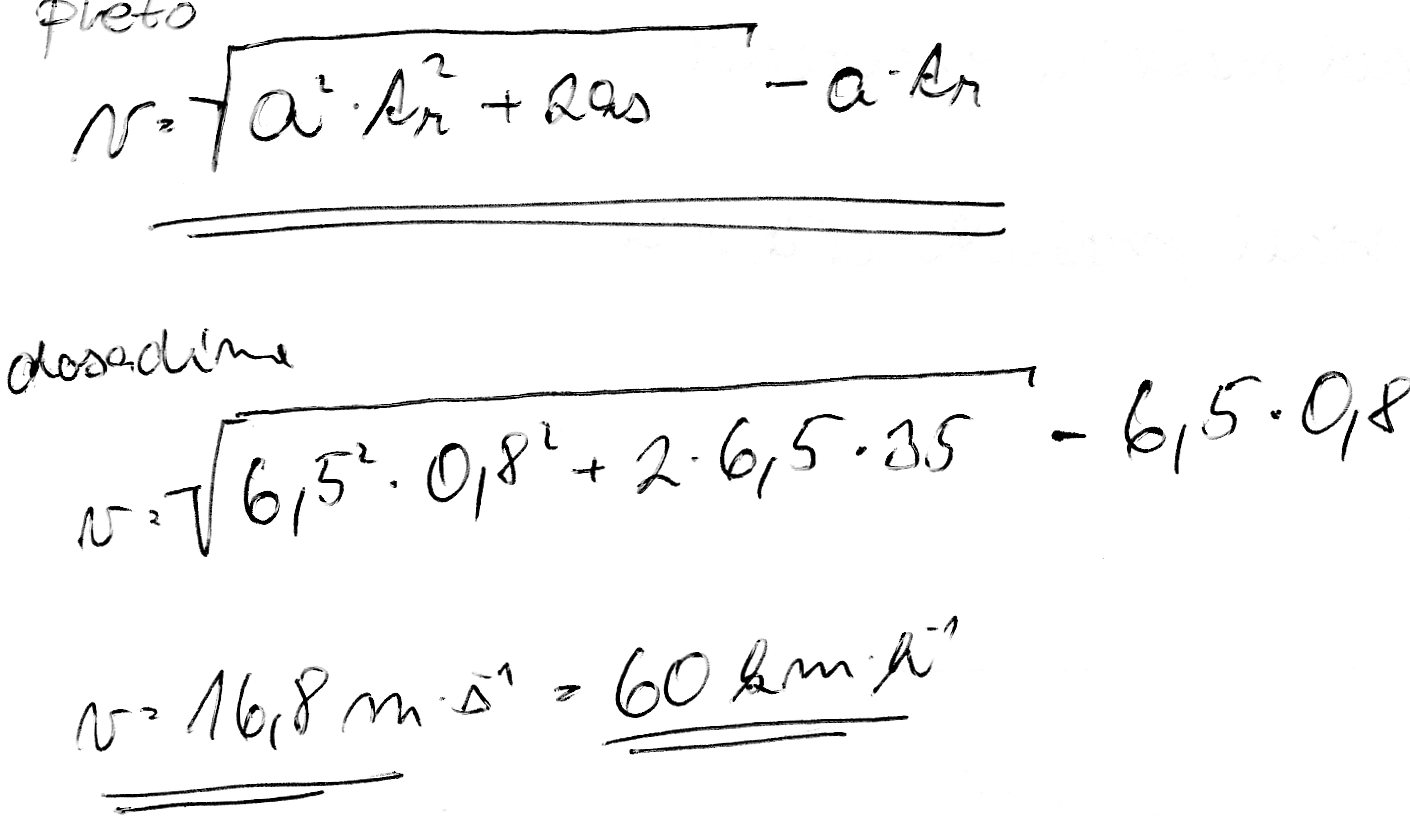 preto
v = √(a² · tᵣ² + 2as) - a · tᵣ
dosadíme
v = √(6,5² · 0,8² + 2 · 6,5 · 35) - 6,5 · 0,8
v = 16,8 m · s⁻¹ = 60 km · h⁻¹